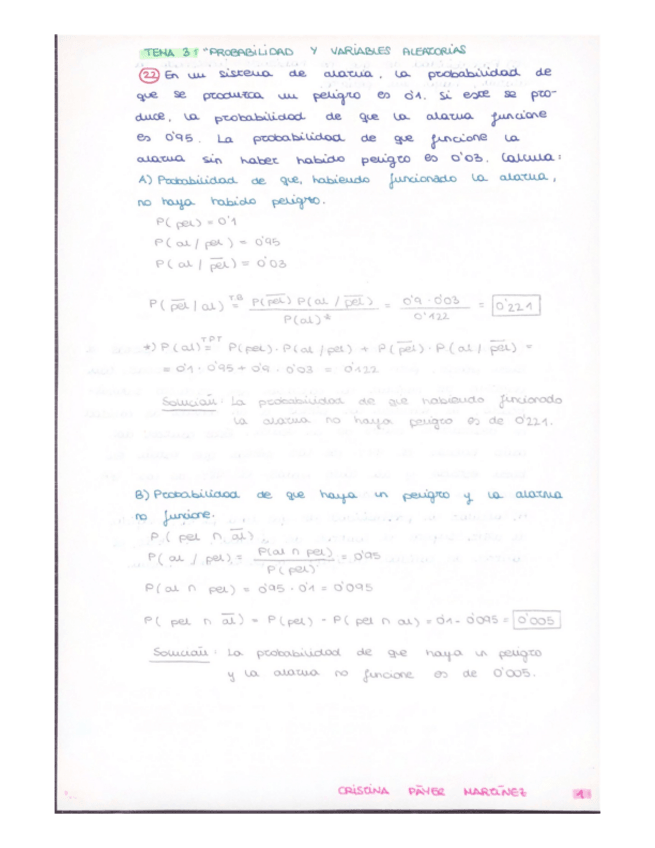 TEMA 3: "PROBABILIDAD Y VARIABLES ALEATORIAS
22 En un sistema de alarma, la probabilidad de
que se produzca un peligro es 0'1. Si este se pro-
duce, la probabilidad de que la alarma funcione
es 0'95. La probabilidad de que funcione la
alarma sin haber habido peligro es 0'03. Calcula:
A) Probabilidad de que, habiendo funcionado la alarma,
no haya habido peligro.
P(pel) = 0'1
P(al / pel) = 0'95
P(al / p̅e̅l̅) = 0'03
P(p̅e̅l̅ / al) T.B = P(p̅e̅l̅) P(al / p̅e̅l̅) / P(al)* = 0'9 · 0'03 / 0'122 = 0'221
*) P(al) TPT = P(pel) · P(al / pel) + P(p̅e̅l̅) · P(al / p̅e̅l̅) =
= 0'1 · 0'95 + 0'9 · 0'03 = 0'122
Solución: La probabilidad de que habiendo funcionado
la alarma no haya peligro es de 0'221.
B) Probabilidad de que haya un peligro y la alarma
no funcione.
P( pel ∩ a̅l̅)
P(al / pel) = P(al ∩ pel) / P(pel) = 0'95
P(al ∩ pel) = 0'95 · 0'1 = 0'095
P( pel ∩ a̅l̅) = P(pel) - P(pel ∩ al) = 0'1 - 0'095 = 0'005
Solución: La probabilidad de que haya un peligro
y la alarma no funcione es de 0'005.
CRISTINA PÄYER MARTÍNEZ 1